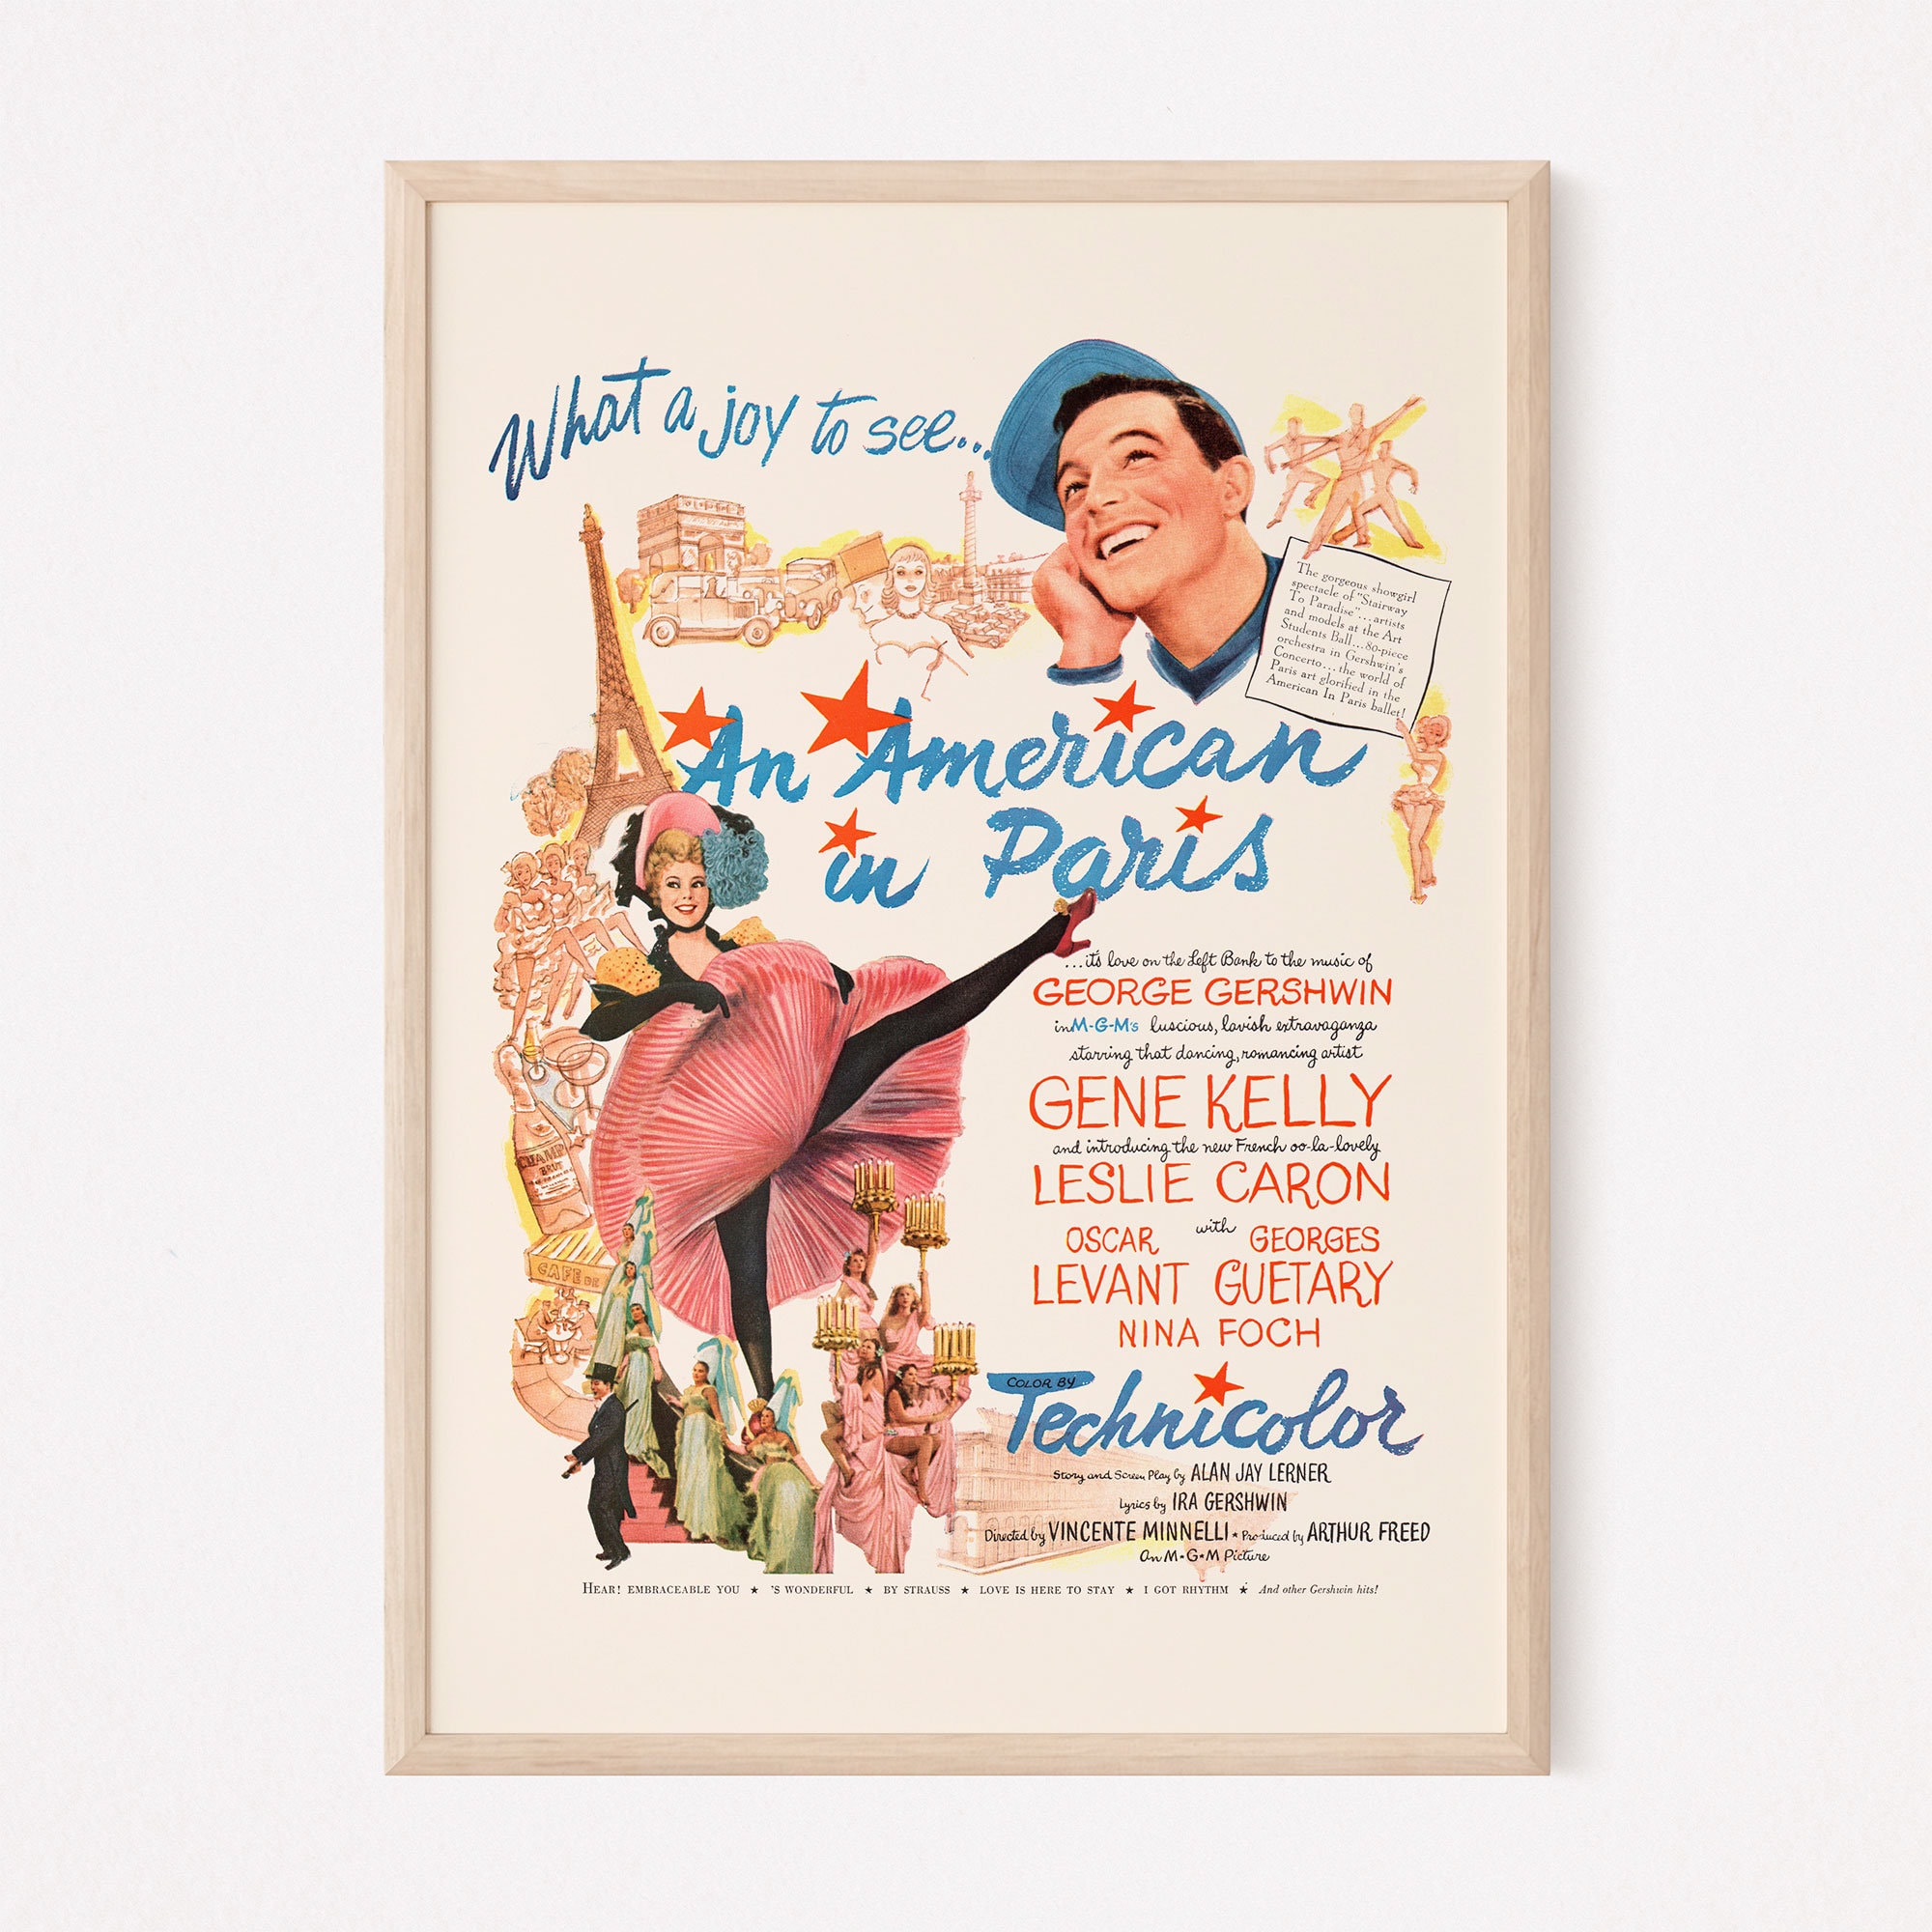 What a joy to see...
The gorgeous showgirl
spectacle of "Stairway
To Paradise"...artists
and models at the Art
Students Ball...80-piece
orchestra in Gershwin's
Concerto...the world of
Paris art glorified in the
American In Paris ballet!
An American
in Paris
...it's love on the Left Bank to the music of
GEORGE GERSHWIN
in M-G-M's luscious, lavish extravaganza
starring that dancing, romancing artist
GENE KELLY
and introducing the new French oo-la-lovely
LESLIE CARON
with
OSCAR GEORGES
LEVANT GUETARY
NINA FOCH
CHAMP
BRUT
CAFE DE
COLOR BY
Technicolor
Story and Screen Play by ALAN JAY LERNER
Lyrics by IRA GERSHWIN
Directed by VINCENTE MINNELLI ★ Produced by ARTHUR FREED
An M-G-M Picture
HEAR! EMBRACEABLE YOU ★ 'S WONDERFUL ★ BY STRAUSS ★ LOVE IS HERE TO STAY ★ I GOT RHYTHM ★ And other Gershwin hits!